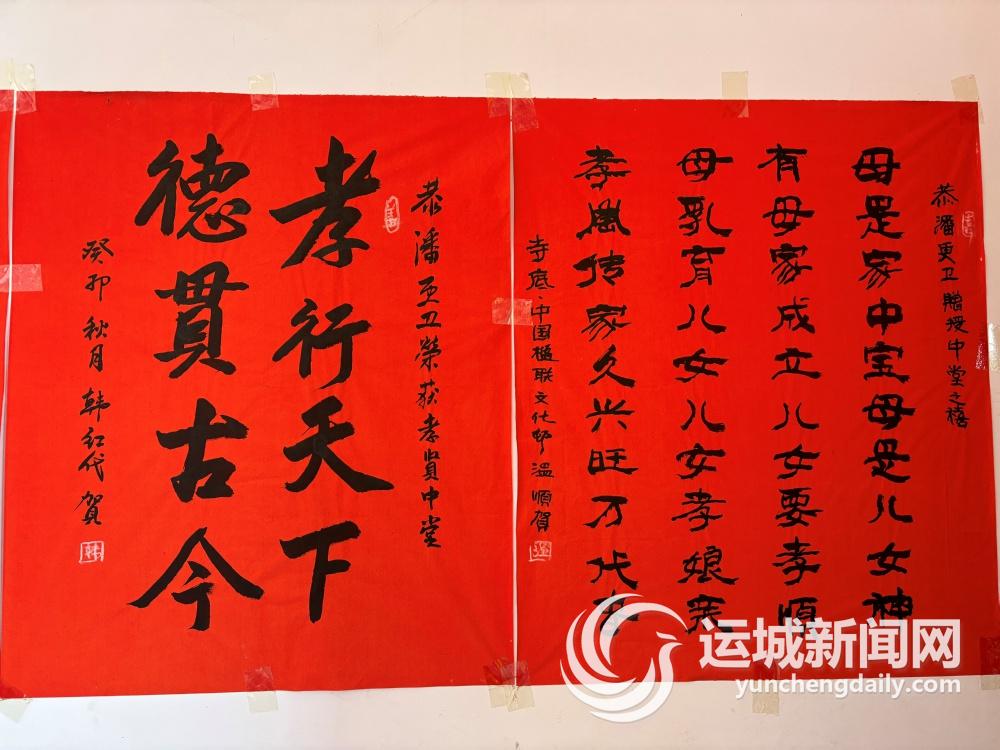 恭潘更卫赠授中堂之禧
母是家中宝母是儿女神
有母家成立儿女要孝順
母乳育儿女儿女孝娘
孝風传家久兴旺万代
寺底·中国楹联文化邨温順賀
恭潘更卫榮获孝賢中堂
孝行天下
德貫古今
癸卯秋月韩红代賀
运城新闻网
yunchengdaily.com